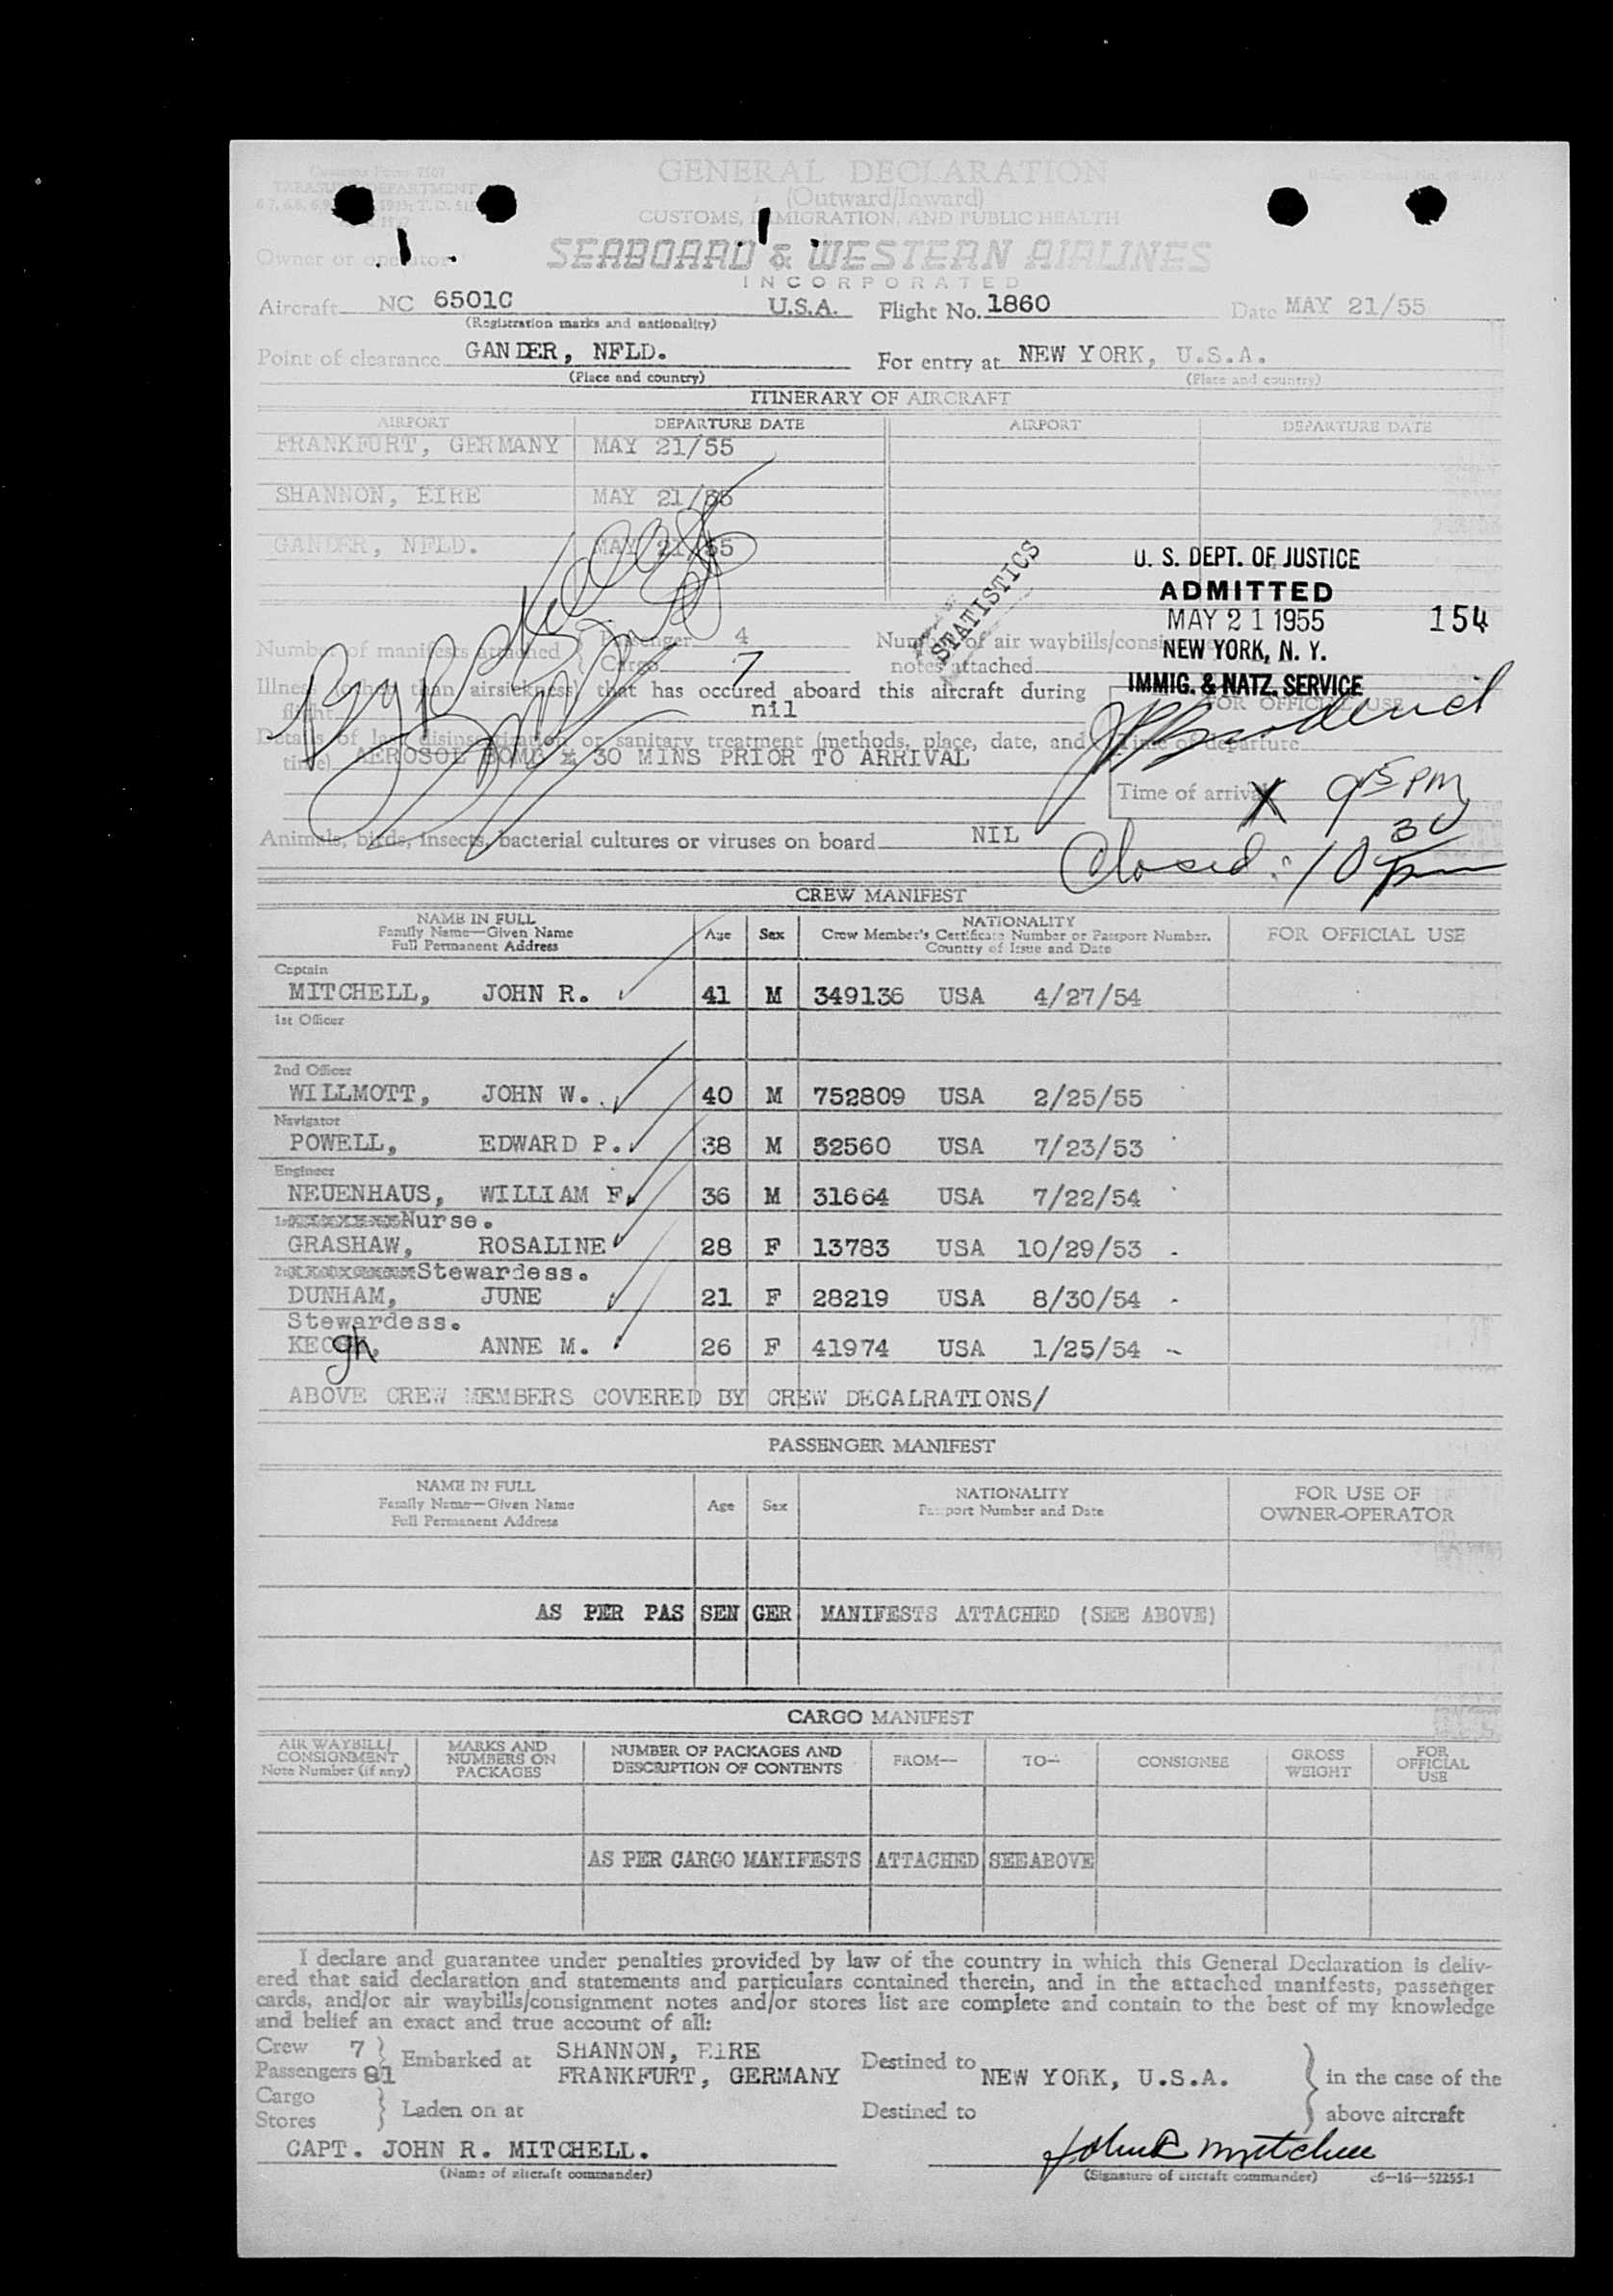 Customs Form 7507
TREASURY DEPARTMENT
GENERAL DECLARATION
(Outward/Inward)
CUSTOMS, IMMIGRATION, AND PUBLIC HEALTH
Owner or operator
SEABOARD & WESTERN AIRLINES
INCORPORATED
Aircraft NC 6501C U.S.A. Flight No. 1860 Date MAY 21/55
(Registration marks and nationality)
Point of clearance GANDER, NFLD. For entry at NEW YORK, U.S.A.
(Place and country) (Place and country)
ITINERARY OF AIRCRAFT
AIRPORT DEPARTURE DATE AIRPORT DEPARTURE DATE
FRANKFURT, GERMANY MAY 21/55
SHANNON, EIRE MAY 21/55
GANDER, NFLD. MAY 21/55
STATISTICS
U. S. DEPT. OF JUSTICE
ADMITTED
MAY 21 1955 154
NEW YORK, N. Y.
IMMIG. & NATZ. SERVICE
Number of manifests attached { Passenger 4 Number of air waybills/consignment
Cargo 7 notes attached
Illness (other than airsickness) that has occured aboard this aircraft during
flight nil FOR OFFICIAL USE
Details of last disinsectization or sanitary treatment (methods, place, date, and Time of departure
time) AEROSOL BOMB 30 MINS PRIOR TO ARRIVAL
Time of arrival X 9 15 PM
Animals, birds, insects, bacterial cultures or viruses on board NIL
Closed: 10 30 pm
CREW MANIFEST
NAME IN FULL
Family Name—Given Name
Full Permanent Address
Age Sex
NATIONALITY
Crew Member's Certificate Number or Passport Number.
Country of Issue and Date
FOR OFFICIAL USE
Captain
MITCHELL, JOHN R. 41 M 349136 USA 4/27/54
1st Officer
2nd Officer
WILLMOTT, JOHN W. 40 M 752809 USA 2/25/55
Navigator
POWELL, EDWARD P. 38 M 52560 USA 7/23/53
Engineer
NEUENHAUS, WILLIAM F. 36 M 31664 USA 7/22/54
Nurse.
GRASHAW, ROSALINE 28 F 13783 USA 10/29/53
Stewardess.
DUNHAM, JUNE 21 F 28219 USA 8/30/54
Stewardess.
KEOgh, ANNE M. 26 F 41974 USA 1/25/54
ABOVE CREW MEMBERS COVERED BY CREW DECALRATIONS/
PASSENGER MANIFEST
NAME IN FULL
Family Name—Given Name
Full Permanent Address
Age Sex
NATIONALITY
Passport Number and Date
FOR USE OF
OWNER-OPERATOR
AS PER PAS SEN GER MANIFESTS ATTACHED (SEE ABOVE)
CARGO MANIFEST
AIR WAYBILL/
CONSIGNMENT
Note Number (if any)
MARKS AND
NUMBERS ON
PACKAGES
NUMBER OF PACKAGES AND
DESCRIPTION OF CONTENTS
FROM—
TO—
CONSIGNEE
GROSS
WEIGHT
FOR
OFFICIAL
USE
AS PER CARGO MANIFESTS ATTACHED SEE ABOVE
I declare and guarantee under penalties provided by law of the country in which this General Declaration is deliv-
ered that said declaration and statements and particulars contained therein, and in the attached manifests, passenger
cards, and/or air waybills/consignment notes and/or stores list are complete and contain to the best of my knowledge
and belief an exact and true account of all:
Crew 7 } Embarked at SHANNON, EIRE Destined to
Passengers 81 FRANKFURT, GERMANY NEW YORK, U.S.A. } in the case of the
Cargo } Laden on at Destined to above aircraft
Stores
CAPT. JOHN R. MITCHELL. John R Mitchell
(Name of aircraft commander) (Signature of aircraft commander) c6—16—52255-1